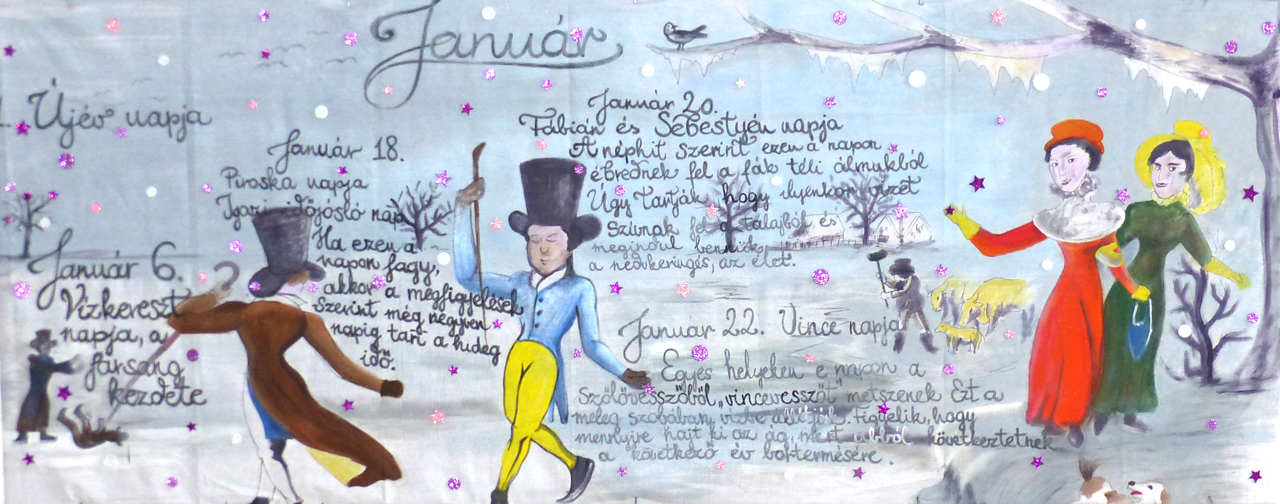 Január
1. Újév napja
Január 6.
Vízkereszt
napja, a
farsang
kezdete
Január 18.
Piroska napja
Igazi időjósló nap
Ha ezen a
napon fagy,
akkor a megfigyelések
szerint még negyven
napig tart a hideg
idő.
Január 20.
Fábián és Sebestyén napja
A néphit szerint ezen a napon
ébrednek fel a fák téli álmukból
Úgy tartják, hogy ilyenkor vizet
szívnak fel a talajból, és
megindul bennük
a nedvkeringés, az élet.
Január 22. Vince napja
Egyes helyeken e napon a
szőlővesszőből „vincevesszőt" metszenek Ezt a
meleg szobában, vízbe állítják. Figyelik, hogy
mennyire hajt ki az ág, mert abból következtetnek
a következő év bortermésére.